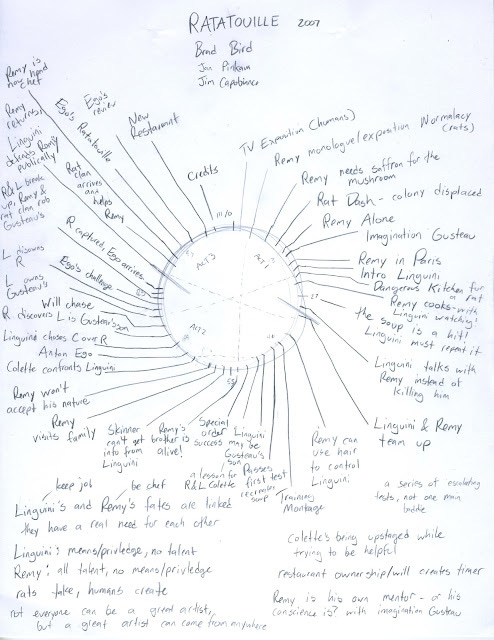 RATATOUILLE 2007
Brad Bird
Jan Pinkava
Jim Capobianco
TV Exposition (humans)
Remy monologue/exposition Normalacy
(rats)
Remy needs saffron for the
mushroom
Rat Dash - colony displaced
Remy Alone
Imagination Gusteau
Remy in Paris
Intro Linguini
Dangerous Kitchen for
a rat
Remy cooks - with
Linguini watching!
the soup is a hit!
Linguini must repeat it
Linguini talks with
Remy instead of
killing him
Linguini & Remy
team up
Remy can
use hair
to control
Linguini
Training
Montage
Passes
first test
recreates
soup
a lesson for
R&L Colette
Linguini
may be
Gusteau's
son
Special
order
success
Remy's
brother is
alive!
Skinner
can't get
info from
Linguini
Remy
visits family
Remy won't
accept his nature
Colette confronts Linguini
Anton Ego
Linguini choses C over R
R discovers L is Gusteau's son
Will chase
L owns
Gusteau's
Ego's challenge
L disowns
R
R captured, Ego arrives
R&L break
up, Remy &
rat clan rob
Gusteau's
Rat
clan
arrives
and
helps
Remy
Linguini
defends Remy
publically
Remy
returns!
Remy is
now head
chef
Ego's Ratatouille
Ego's
review
New
Restaurant
Credits
111/0
ACT 1
ACT 2
ACT 3
27
55
keep job
be chef
Linguini's and Remy's fates are linked
they have a real need for each other
Linguini: means/privledge, no talent
Remy: all talent, no means/privledge
rats take, humans create
not everyone can be a great artist,
but a great artist can come from anywhere
a series of escalating
tests, not one main
battle
Colette's being upstaged while
trying to be helpful
restaurant ownership/will creates timer
Remy is his own mentor - or his
conscience is? with imagination Gusteau